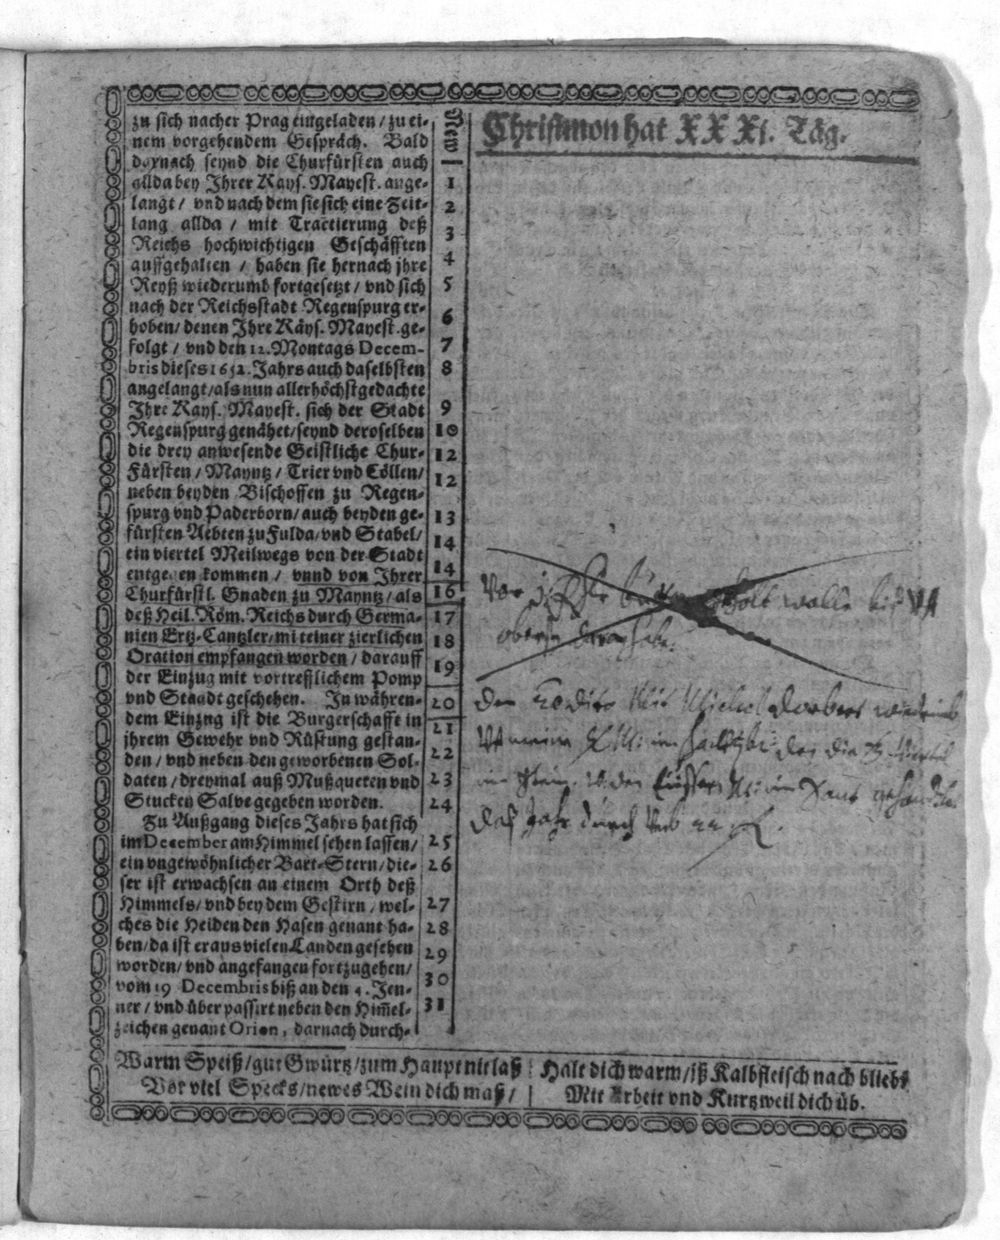 zu sich nacher Prag eingeladen / zu ei-
nem vorgehendem Gespräch. Bald
darnach seynd die Churfürsten auch
allda bey Ihrer Kays. Mayest. ange-
langt / vnd nach dem sie sich eine Zeit-
lang allda / mit Tractierung deß
Reichs hochwichtigen Geschäfften
auffgehalten / haben sie hernach jhre
Reyß wiederumb fortgesetzt / vnd sich
nach der Reichsstadt Regenspurg er-
hoben / denen Ihre Käys. Mayest. ge-
folgt / vnd den 12. Montags Decem-
bris dieses 1652. Jahrs auch daselbsten
angelangt / als nun allerhöchstgedachte
Ihre Kays. Mayest. sich der Stadt
Regenspurg genähet / seynd deroselben
die drey anwesende Geistliche Chur-
Fürsten / Mayntz / Trier vnd Cöllen /
neben beyden Bischoffen zu Regen-
spurg vnd Paderborn / auch beyden ge-
fürsten Aebten zu Fulda / vnd Stabel /
ein viertel Meilwegs von der Stadt
entgegen kommen / vnnd von Ihrer
Churfürstl. Gnaden zu Mayntz / als
deß Heil. Röm. Reichs durch Germa-
nien Ertz-Cantzler / mit einer zierlichen
Oration empfangen worden / darauff
der Einzug mit vortrefflichem Pomp
vnd Staadt geschehen. In währen-
dem Einzug ist die Burgerschafft in
jhrem Gewehr vnd Rüstung gestan-
den / vnd neben den geworbenen Sol-
daten / dreymal auß Mußqueten vnd
Stucken Salve gegeben worden.
Zu Außgang dieses Jahrs hat sich
im December am Himmel sehen lassen /
ein vngewöhnlicher Bart-Stern / die-
ser ist erwachsen an einem Orth deß
Himmels / vnd bey dem Gestirn / wel-
ches die Heiden den Hasen genant ha-
ben / da ist er aus vielen Landen gesehen
worden / vnd angefangen fortzugehen /
vom 19 Decembris biß an den 4. Jen-
ner / vnd über passirt neben den Him̃el-
zeichen genant Orion, darnach durch-
1
2
3
4
5
6
7
8
9
10
12
12
13
14
14
16
17
18
19
20
21
22
23
24
25
26
27
28
29
30
31
Christmon hat XXXI. Täg.
das Jahr durch
Warm Speiß / gut Gwürtz / zum Haupt nit laß
Vor viel Specks / newes Wein dich maß /
Halt dich warm / iß Kalbfleisch nach bliebt
Mit Arbeit vnd Kurtzweil dich üb.